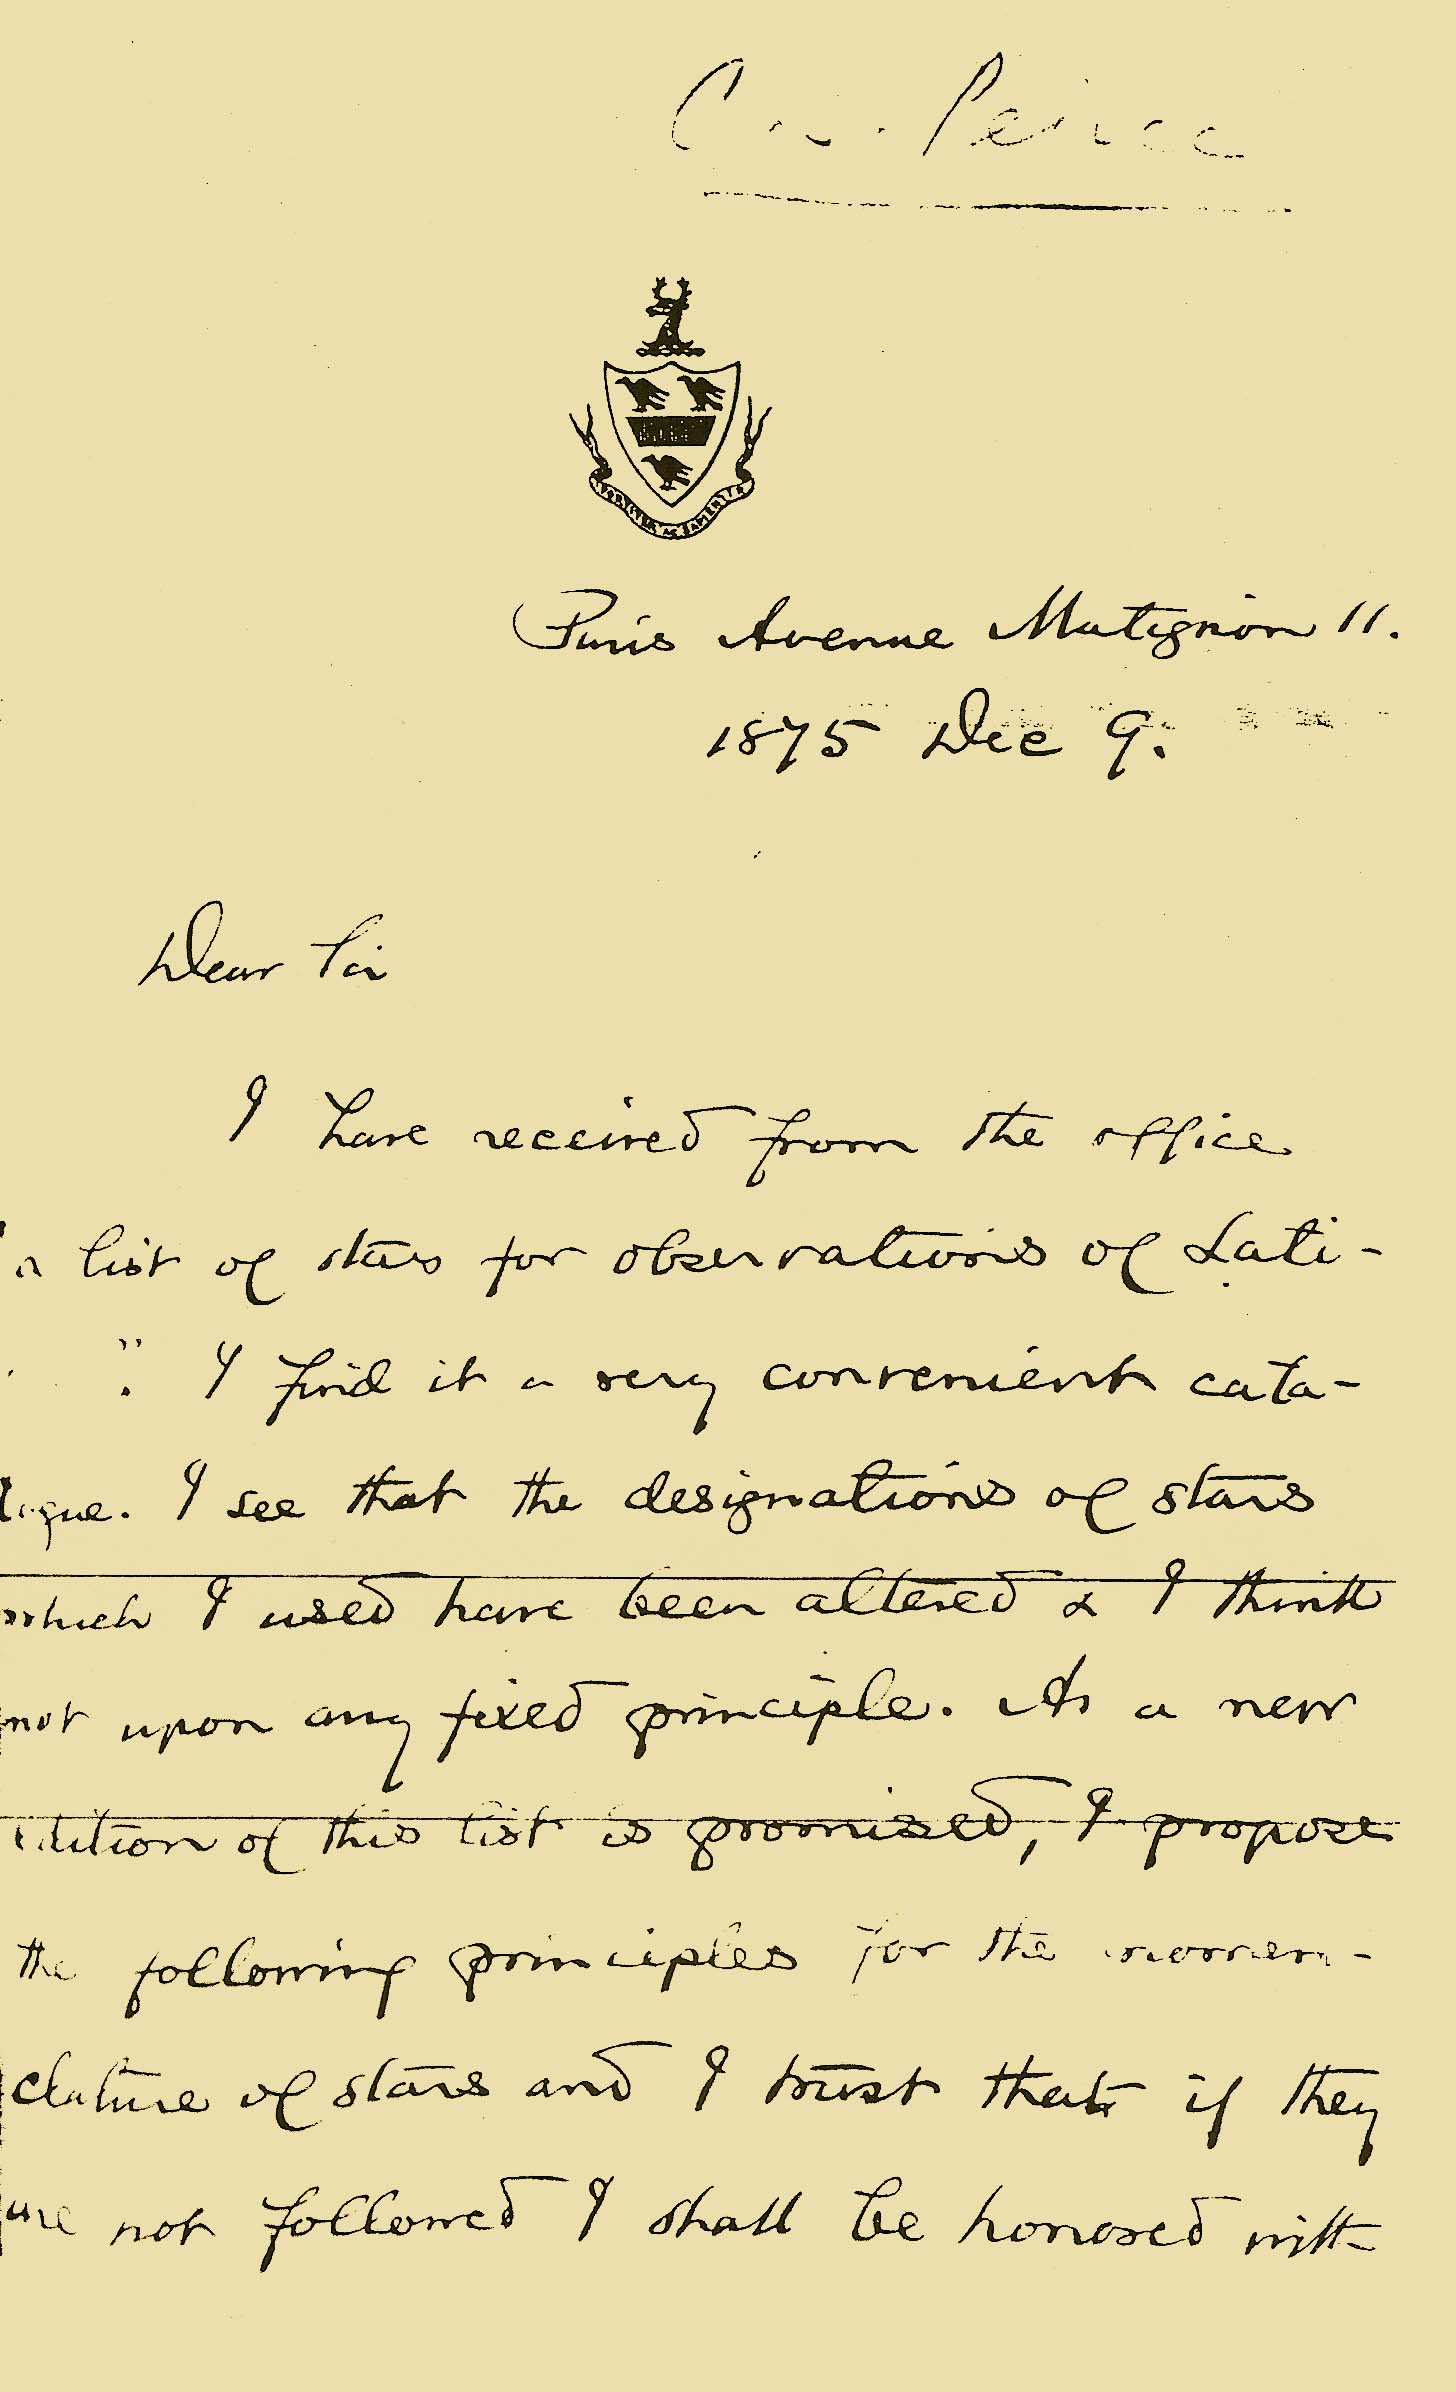 Peirce
FORTITER AC SAPIENTER
Paris Avenue Matignon 11.
1875 Dec 9.
Dear Sir
I have received from the office
"a list of stars for observations of Lati-
". I find it a very convenient cata-
logue. I see that the designations of stars
which I used have been altered & I think
not upon any fixed principle. As a new
edition of this list is promised, I propose
the following principles for the nomen-
clature of stars and I trust that if they
are not followed I shall be honored with